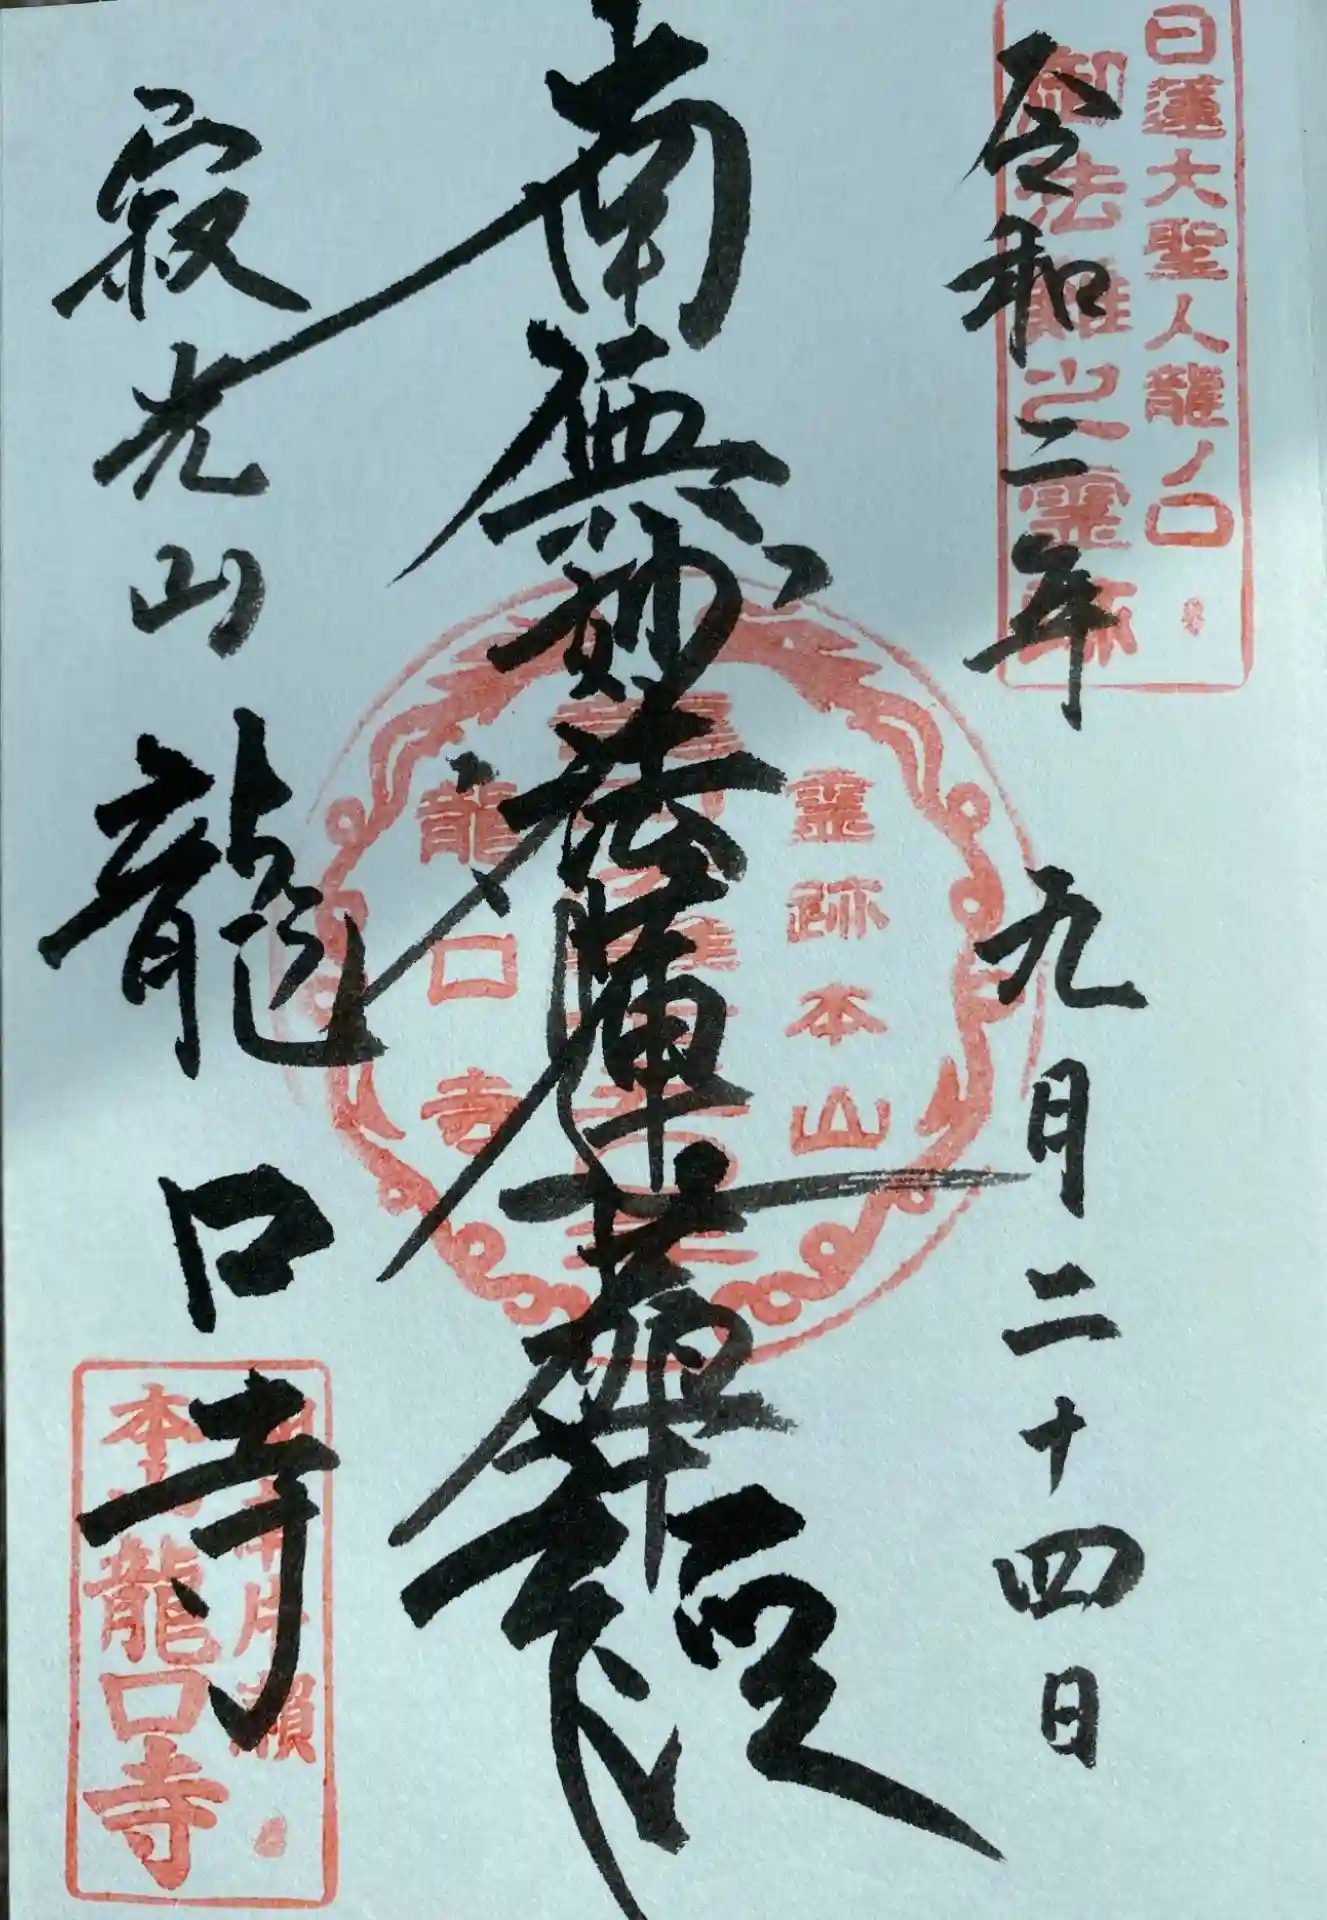 日蓮大聖人龍ノ口
御法難之霊跡
令和二年 九月二十四日
南無妙法蓮華経
霊跡本山
龍口寺
寂光山 龍口寺
片瀬
本山龍口寺